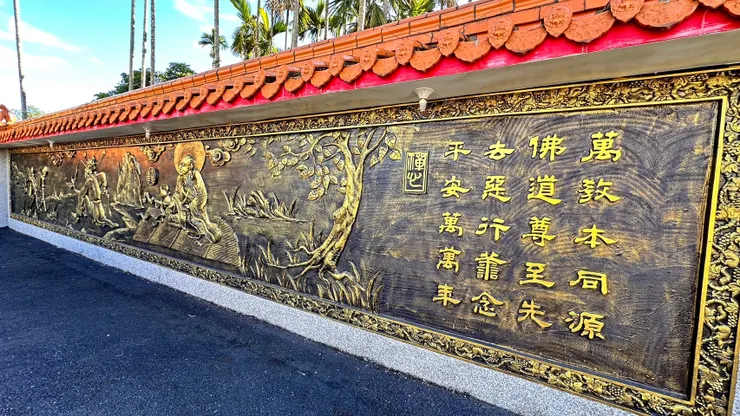 萬教本同源
佛道尊至先
去惡行善念
平安萬萬年
禪心